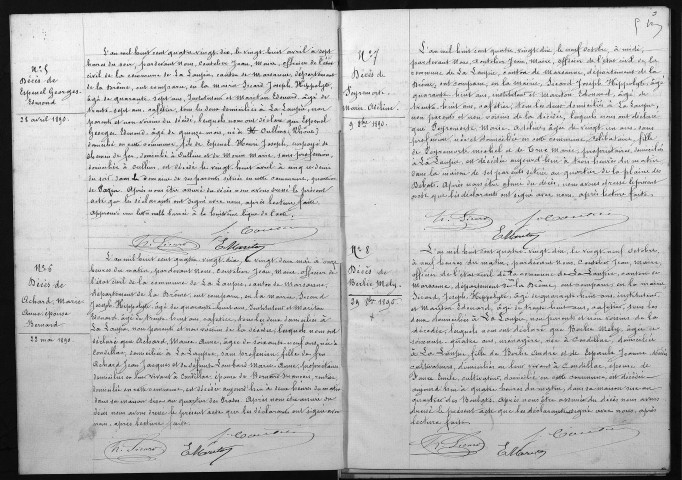 N° 5
Décès de
Espenel Georges
Edmond
28 avril 1890.
L'an mil huit cent quatre vingt dix, le vingt huit avril à sept
heures du soir, pardevant Nous, Coutelier Jean, Maire, officier de l'état
civil de la commune de La Laupie, canton de Marsanne, département
de la Drôme, ont comparu, en la Mairie Sicard Joseph Hippolyte,
âgé de quarante huit ans, Instituteur et Mariton Edouard, âgé de
trente sept ans, cafetier, tous les deux domiciliés à La Laupie, non
parents et non voisins du décédé, lesquels nous ont déclaré que Espenel
Georges Edmond, âgé de quinze mois, né à Oullins (Rhône)
domicilié en cette commune, fils de Espenel Henri Joseph, employé de
chemin de fer, domicilié à Oullins et de Mourier Marie, sans profession,
domiciliée à Oullins, est décédé le vingt huit avril à cinq heures
du soir, dans la maison de ses parents située en cette commune, quartier
de. Après nous être assuré du décès nous avons dressé le présent
acte que les déclarants ont signé avec nous, après lecture faite.
H. Sicard E. Mariton J. Coutelier
N° 6
Décès de
Achard Marie
Anne épouse
Bernard
22 mai 1890.
L'an mil huit cent quatre vingt dix, le vingt deux mai à onze
heures du matin, pardevant Nous, Coutelier Jean, Maire officier de
l'état civil de la commune de La Laupie, canton de Marsanne,
département de la Drôme, ont comparu, en la Mairie, Sicard
Joseph Hippolyte, âgé de quarante huit ans, Instituteur et Mariton
Edouard, âgé de trente huit ans, cafetier, tous les deux domiciliés à
La Laupie, non parents et non voisins de la décédée, lesquels nous ont
déclaré que Achard, Marie Anne, âgée de soixante neuf ans, née à
Condillac, domiciliée à La Laupie, sans profession, fille de feu
Achard Jean Jacques et de défunte Lombard Marie Anne, propriétaires,
domiciliés en leur vivant à Condillac, épouse de Bernard, rentier,
domicilié en cette commune, est décédée aujourd'hui à heures du matin
dans sa maison sise au quartier de. Après nous être assuré du
décès nous avons dressé le présent acte que les déclarants ont signé avec
nous, après lecture faite.
H. Sicard E. Mariton J. Coutelier
N° 7
Décès de
Peyremorte
Marie Adeline
9 8bre 1890.
L'an mil huit cent quatre vingt dix, le neuf octobre, à midi,
pardevant Nous, Coutelier Jean, Maire, officier de l'état civil de la
commune de La Laupie, canton de Marsanne, département de la Drôme,
ont comparu, en la Mairie, Sicard Joseph Hippolyte, âgé de
quarante huit ans, instituteur et Mariton Edouard, âgé de
trente huit ans, cafetier, tous les deux domiciliés à La Laupie,
non parents et non voisins de la décédée, lesquels nous ont déclaré
que Peyremorte Marie, Adeline, âgée de vingt un ans, sans
profession, née et domiciliée en cette commune, célibataire, fille
de Peyremorte Michel et de Marie, propriétaires, domiciliés
à La Laupie, est décédée aujourd'hui à trois heures du matin
dans la maison de ses parents située au quartier de la plaine des
Après nous être assuré du décès, nous avons dressé le présent
acte que les déclarants ont signé avec nous, après lecture faite.
H. Sicard E. Mariton J. Coutelier
N° 8
Décès de
Barbe Mély
29 8bre 1890.
L'an mil huit cent quatre vingt dix, le vingt neuf octobre,
à neuf heures du matin, pardevant Nous, Coutelier Jean, Maire,
officier de l'état civil de la commune de La Laupie, canton de
Marsanne, département de la Drôme, ont comparu, en la mairie,
Sicard Joseph Hippolyte, âgé de quarante huit ans, instituteur
et Mariton Edouard, âgé de trente huit ans, cafetier, tous les
deux domiciliés à La Laupie, non parents et non voisins de la
décédée, lesquels nous ont déclaré que Barbe Mély, âgée de
soixante quatre ans, ménagère, née à Condillac, domiciliée
à La Laupie, fille de Barbe André et de Jeanne décédés
cultivateurs, domiciliés en leur vivant à Condillac, épouse de
Faure Emile, cultivateur, domicilié en cette commune, est décédée
aujourd'hui à quatre heures du matin, dans sa maison sise au
quartier des. Après nous être assuré du décès nous avons
dressé le présent acte que les déclarants ont signé avec nous, après
lecture faite.
H. Sicard E. Mariton J. Coutelier